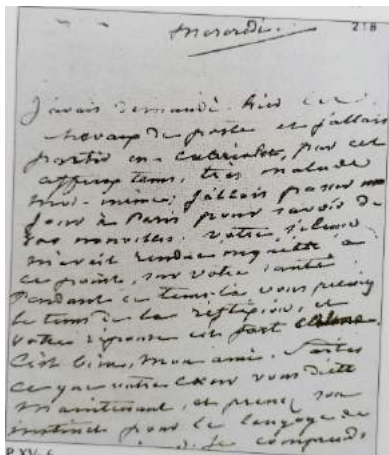 Mercredi.
218
J'avais demandé hier des
chevaux de poste et j'allais
partir en cabriolet, par cet
affreux tems, très malade
moi-même; j'allais passer un
jour à Paris pour savoir de
vos nouvelles. Votre silence
m'avait rendue inquiète à
ce point, sur votre santé.
Pendant ce tems-là vous preniez
le tems de la réflexion, et
votre réponse est fort
C'est bien, mon ami. Faites
ce que votre cœur vous dicte
maintenant, et prenez son
instinct pour le langage de
Je comprends
P.XV.